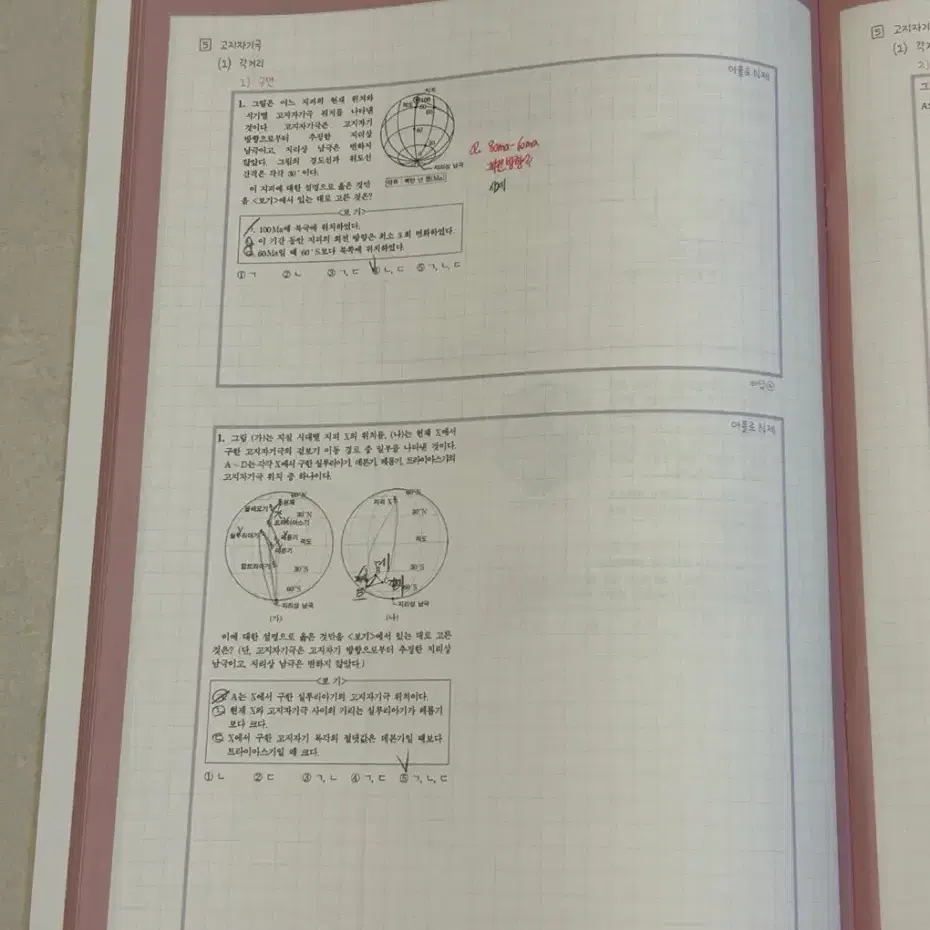 5 고지자기극
(1) 각거리
1) 구면
어폴로 N제
1. 그림은 어느 지괴의 현재 위치와
시기별 고지자기극 위치를 나타낸
것이다. 고지자기극은 고지자기
방향으로부터 추정한 지리상
남극이고, 지리상 남극은 변하지
않았다. 그림의 경도선과 위도선
간격은 각각 30°이다.
적도
지리상 남극
단위 : 백만 년 전(Ma)
이 지괴에 대한 설명으로 옳은 것만
을 <보기>에서 있는 대로 고른 것은?
<보 기>
ㄱ. 100Ma에 북극에 위치하였다.
ㄴ. 이 기간 동안 지괴의 회전 방향은 최소 2회 변화하였다.
ㄷ. 60Ma일 때 60°S보다 북쪽에 위치하였다.
① ㄱ ② ㄴ ③ ㄱ, ㄷ ④ ㄴ, ㄷ ⑤ ㄱ, ㄴ, ㄷ
80ma-60ma
회전방향
어폴로 N제
1. 그림 (가)는 지질 시대별 지괴 X의 위치를, (나)는 현재 X에서
구한 고지자기극의 겉보기 이동 경로 중 일부를 나타낸 것이다.
A~D는 각각 X에서 구한 실루리아기, 데본기, 페름기, 트라이아스기의
고지자기극 위치 중 하나이다.
60°N
팔레오기
현재
트라이아스기
30°N
실루리아기
페름기
적도
데본기
캄브리아기
30°S
60°S
지리상 남극
(가)
60°N
지괴 X
30°N
적도
30°S
60°S
지리상 남극
(나)
이에 대한 설명으로 옳은 것만을 <보기>에서 있는 대로 고른
것은? (단, 고지자기극은 고지자기 방향으로부터 추정한 지리상
남극이고, 지리상 남극은 변하지 않았다.)
<보 기>
ㄱ. A는 X에서 구한 실루리아기의 고지자기극 위치이다.
ㄴ. 현재 X와 고지자기극 사이의 거리는 실루리아기가 페름기
보다 크다.
ㄷ. X에서 구한 고지자기 복각의 절댓값은 데본기일 때보다
트라이아스기일 때 크다.
① ㄴ ② ㄷ ③ ㄱ, ㄴ ④ ㄱ, ㄷ ⑤ ㄱ, ㄴ, ㄷ
5 고지자기